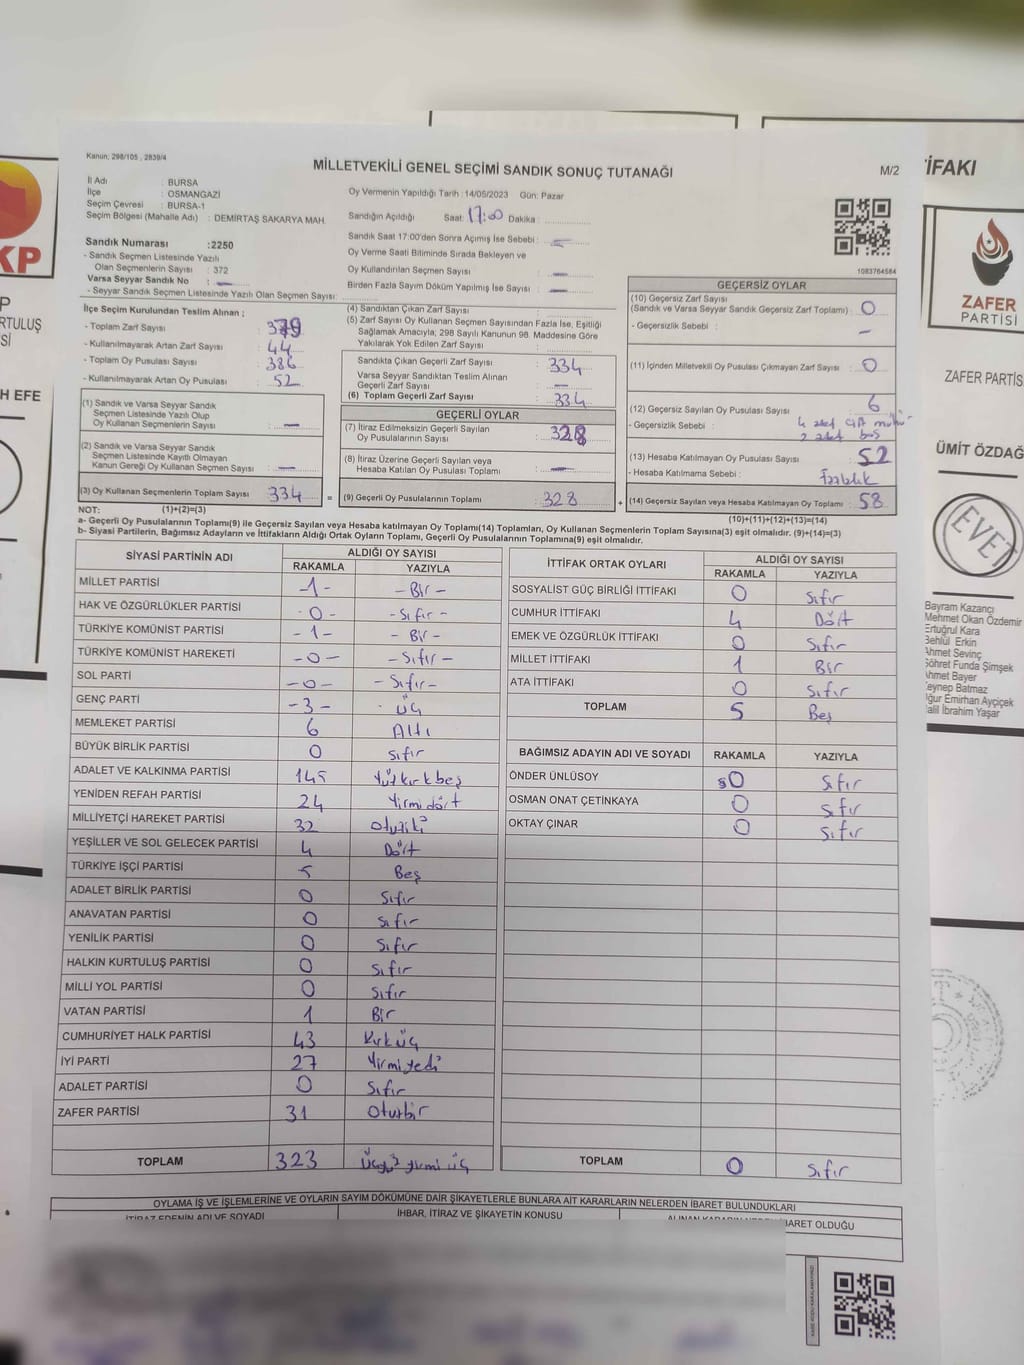 Kanun; 298/105 , 2839/4
MİLLETVEKİLİ GENEL SEÇİMİ SANDIK SONUÇ TUTANAĞI
M/2
İl Adı : BURSA
İlçe : OSMANGAZİ
Seçim Çevresi : BURSA-1
Seçim Bölgesi (Mahalle Adı) : DEMİRTAŞ SAKARYA MAH.
Oy Vermenin Yapıldığı Tarih : 14/05/2023 Gün: Pazar
Sandığın Açıldığı Saat: 17:00 Dakika :
Sandık Numarası :2250
- Sandık Seçmen Listesinde Yazılı
Olan Seçmenlerin Sayısı : 372
Varsa Seyyar Sandık No : —
- Seyyar Sandık Seçmen Listesinde Yazılı Olan Seçmen Sayısı:
Sandık Saat 17:00'den Sonra Açılmış İse Sebebi :
Oy Verme Saati Bitiminde Sırada Bekleyen ve
Oy Kullandırılan Seçmen Sayısı : —
Birden Fazla Sayım Döküm Yapılmış İse Sayısı : —
1083764584
İlçe Seçim Kurulundan Teslim Alınan ;
- Toplam Zarf Sayısı : 379
- Kullanılmayarak Artan Zarf Sayısı : 44
- Toplam Oy Pusulası Sayısı : 386
- Kullanılmayarak Artan Oy Pusulası : 52
(1) Sandık ve Varsa Seyyar Sandık
Seçmen Listesinde Yazılı Olup
Oy Kullanan Seçmenlerin Sayısı : —
(2) Sandık ve Varsa Seyyar Sandık
Seçmen Listesinde Kayıtlı Olmayan
Kanun Gereği Oy Kullanan Seçmen Sayısı : —
(3) Oy Kullanan Seçmenlerin Toplam Sayısı : 334
(4) Sandıktan Çıkan Zarf Sayısı :
(5) Zarf Sayısı Oy Kullanan Seçmen Sayısından Fazla İse, Eşitliği
Sağlamak Amacıyla, 298 Sayılı Kanunun 98. Maddesine Göre
Yakılarak Yok Edilen Zarf Sayısı :
Sandıkta Çıkan Geçerli Zarf Sayısı : 334
Varsa Seyyar Sandıktan Teslim Alınan
Geçerli Zarf Sayısı : —
(6) Toplam Geçerli Zarf Sayısı : 334
GEÇERLİ OYLAR
(7) İtiraz Edilmeksizin Geçerli Sayılan
Oy Pusulalarının Sayısı : 328
(8) İtiraz Üzerine Geçerli Sayılan veya
Hesaba Katılan Oy Pusulası Toplamı : —
= (9) Geçerli Oy Pusulalarının Toplamı : 328
GEÇERSİZ OYLAR
(10) Geçersiz Zarf Sayısı
(Sandık ve Varsa Seyyar Sandık Geçersiz Zarf Toplamı) : 0
- Geçersizlik Sebebi : —
(11) İçinden Milletvekili Oy Pusulası Çıkmayan Zarf Sayısı : 0
(12) Geçersiz Sayılan Oy Pusulası Sayısı : 6
- Geçersizlik Sebebi : 4 adet çift mühür
2 adet boş
(13) Hesaba Katılmayan Oy Pusulası Sayısı : 52
- Hesaba Katılmama Sebebi : Fazlalık
+ (14) Geçersiz Sayılan veya Hesaba Katılmayan Oy Toplamı : 58
NOT: (1)+(2)=(3)
(10)+(11)+(12)+(13)=(14)
a- Geçerli Oy Pusulalarının Toplamı(9) ile Geçersiz Sayılan veya Hesaba katılmayan Oy Toplamı(14) Toplamları, Oy Kullanan Seçmenlerin Toplam Sayısına(3) eşit olmalıdır. (9)+(14)=(3)
b- Siyasi Partilerin, Bağımsız Adayların ve İttifakların Aldığı Ortak Oyların Toplamı, Geçerli Oy Pusulalarının Toplamına(9) eşit olmalıdır.
SİYASİ PARTİNİN ADI ALDIĞI OY SAYISI
RAKAMLA YAZIYLA
MİLLET PARTİSİ -1- - Bir -
HAK VE ÖZGÜRLÜKLER PARTİSİ -0- - Sıfır -
TÜRKİYE KOMÜNİST PARTİSİ -1- - Bir -
TÜRKİYE KOMÜNİST HAREKETİ -0- - Sıfır -
SOL PARTİ -0- - Sıfır -
GENÇ PARTİ -3- Üç
MEMLEKET PARTİSİ 6 Altı
BÜYÜK BİRLİK PARTİSİ 0 Sıfır
ADALET VE KALKINMA PARTİSİ 145 Yüzkırkbeş
YENİDEN REFAH PARTİSİ 24 Yirmidört
MİLLİYETÇİ HAREKET PARTİSİ 32 Otuziki
YEŞİLLER VE SOL GELECEK PARTİSİ 4 Dört
TÜRKİYE İŞÇİ PARTİSİ 5 Beş
ADALET BİRLİK PARTİSİ 0 Sıfır
ANAVATAN PARTİSİ 0 Sıfır
YENİLİK PARTİSİ 0 Sıfır
HALKIN KURTULUŞ PARTİSİ 0 Sıfır
MİLLİ YOL PARTİSİ 0 Sıfır
VATAN PARTİSİ 1 Bir
CUMHURİYET HALK PARTİSİ 43 Kırküç
İYİ PARTİ 27 Yirmiyedi
ADALET PARTİSİ 0 Sıfır
ZAFER PARTİSİ 31 Otuzbir
TOPLAM 323 Üçyüz yirmi üç
İTTİFAK ORTAK OYLARI ALDIĞI OY SAYISI
RAKAMLA YAZIYLA
SOSYALİST GÜÇ BİRLİĞİ İTTİFAKI 0 Sıfır
CUMHUR İTTİFAKI 4 Dört
EMEK VE ÖZGÜRLÜK İTTİFAKI 0 Sıfır
MİLLET İTTİFAKI 1 Bir
ATA İTTİFAKI 0 Sıfır
TOPLAM 5 Beş
BAĞIMSIZ ADAYIN ADI VE SOYADI RAKAMLA YAZIYLA
ÖNDER ÜNLÜSOY 0 Sıfır
OSMAN ONAT ÇETİNKAYA 0 Sıfır
OKTAY ÇINAR 0 Sıfır
TOPLAM 0 Sıfır
OYLAMA İŞ VE İŞLEMLERİNE VE OYLARIN SAYIM DÖKÜMÜNE DAİR ŞİKAYETLERLE BUNLARA AİT KARARLARIN NELERDEN İBARET BULUNDUKLARI
İTİRAZ EDENİN ADI VE SOYADI
İHBAR, İTİRAZ VE ŞİKAYETİN KONUSU
İBARET OLDUĞU
KP
RTULUŞ
Sİ
H EFE
İFAKI
ZAFER
PARTİSİ
ZAFER PARTİS
ÜMİT ÖZDAĞ
EVET
Bayram Kazancı
Mehmet Okan Özdemir
Ertuğrul Kara
Behlül Erkin
Ahmet Sevinç
Şöhret Funda Şimşek
Ahmet Bayer
Zeynep Batmaz
Uğur Emirhan Ayçiçek
Halil İbrahim Yaşar